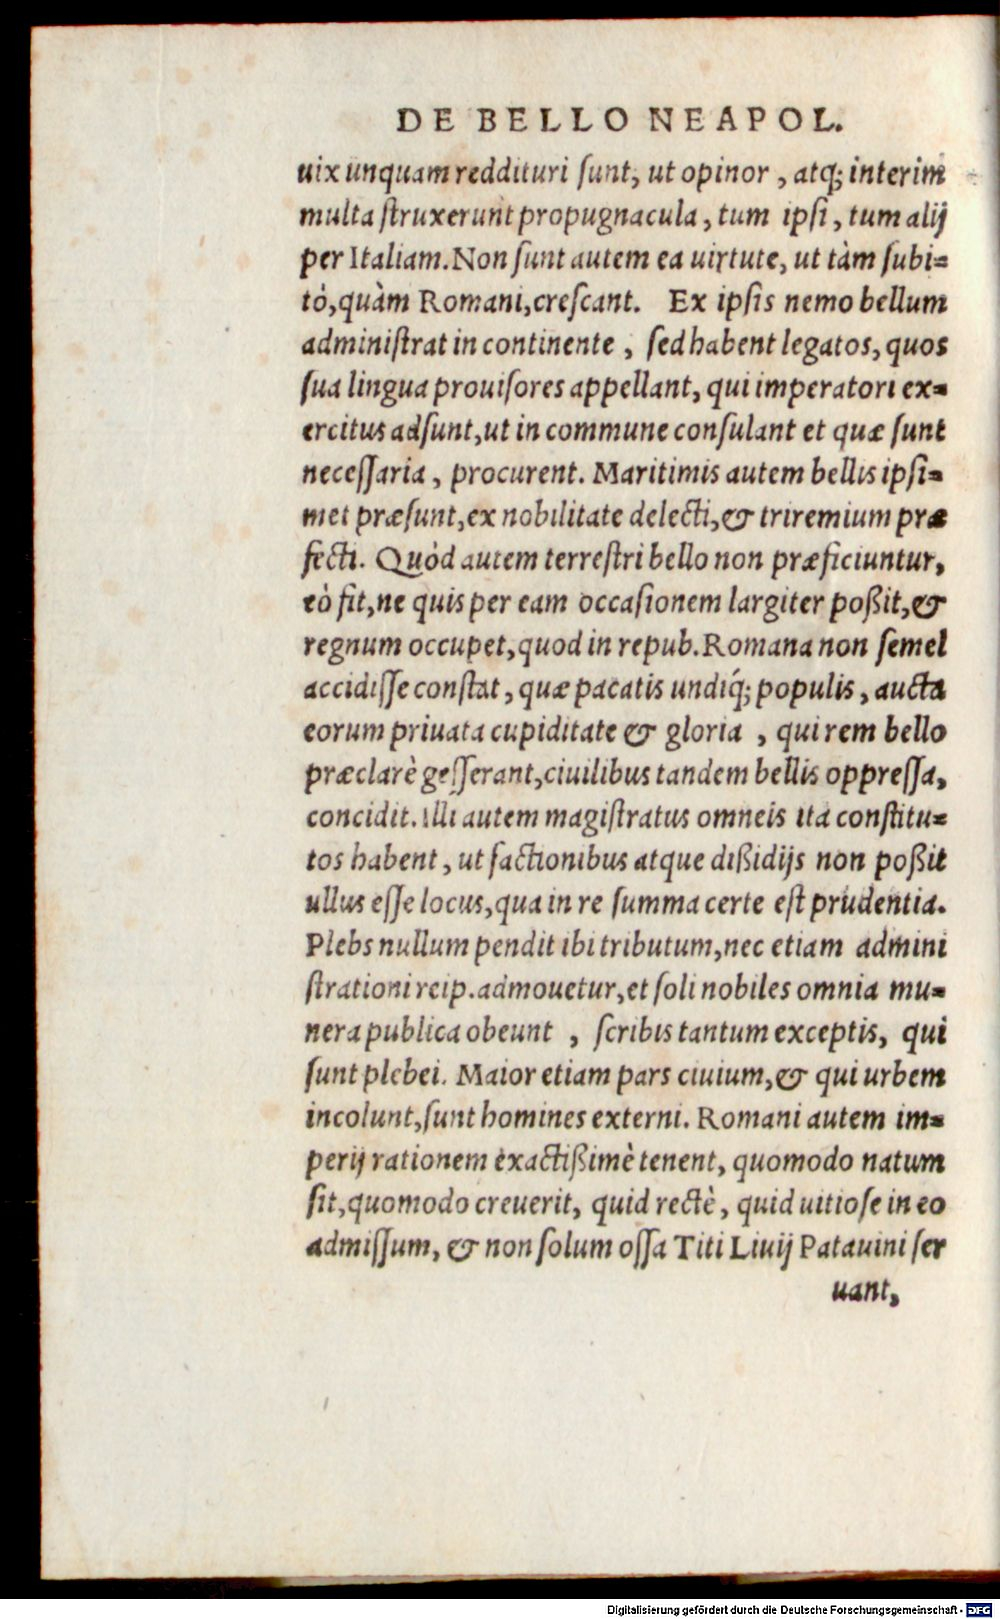 DE BELLO NEAPOL.
uix unquam reddituri ſunt, ut opinor, atq; interim
multa ſtruxerunt propugnacula, tum ipſi, tum alij
per Italiam. Non ſunt autem ea uirtute, ut tàm ſubi=
tò, quàm Romani, creſcant. Ex ipſis nemo bellum
adminiſtrat in continente, ſed habent legatos, quos
ſua lingua prouiſores appellant, qui imperatori ex=
ercitus adſunt, ut in commune conſulant et quæ ſunt
neceſſaria, procurent. Maritimis autem bellis ipſi=
met præſunt, ex nobilitate delecti, & triremium præ
fecti. Quòd autem terreſtri bello non præficiuntur,
eò fit, ne quis per eam occaſionem largiter poßit, &
regnum occupet, quod in repub. Romana non ſemel
accidiſſe conſtat, quæ pacatis undiq́; populis, aucta
eorum priuata cupiditate & gloria, qui rem bello
præclarè geſſerant, ciuilibus tandem bellis oppreſſa,
concidit. Illi autem magiſtratus omneis ita conſtitu=
tos habent, ut factionibus atque dißidijs non poßit
ullus eſſe locus, qua in re ſumma certe eſt prudentia.
Plebs nullum pendit ibi tributum, nec etiam admini
ſtrationi reip. admouetur, et ſoli nobiles omnia mu=
nera publica obeunt, ſcribis tantum exceptis, qui
ſunt plebei. Maior etiam pars ciuium, & qui urbem
incolunt, ſunt homines externi. Romani autem im=
perij rationem exactißimè tenent, quomodo natum
ſit, quomodo creuerit, quid rectè, quid uitioſe in eo
admiſſum, & non ſolum oſſa Titi Liuij Patauini ſer
uant,
Digitalisierung gefördert durch die Deutsche Forschungsgemeinschaft - DFG